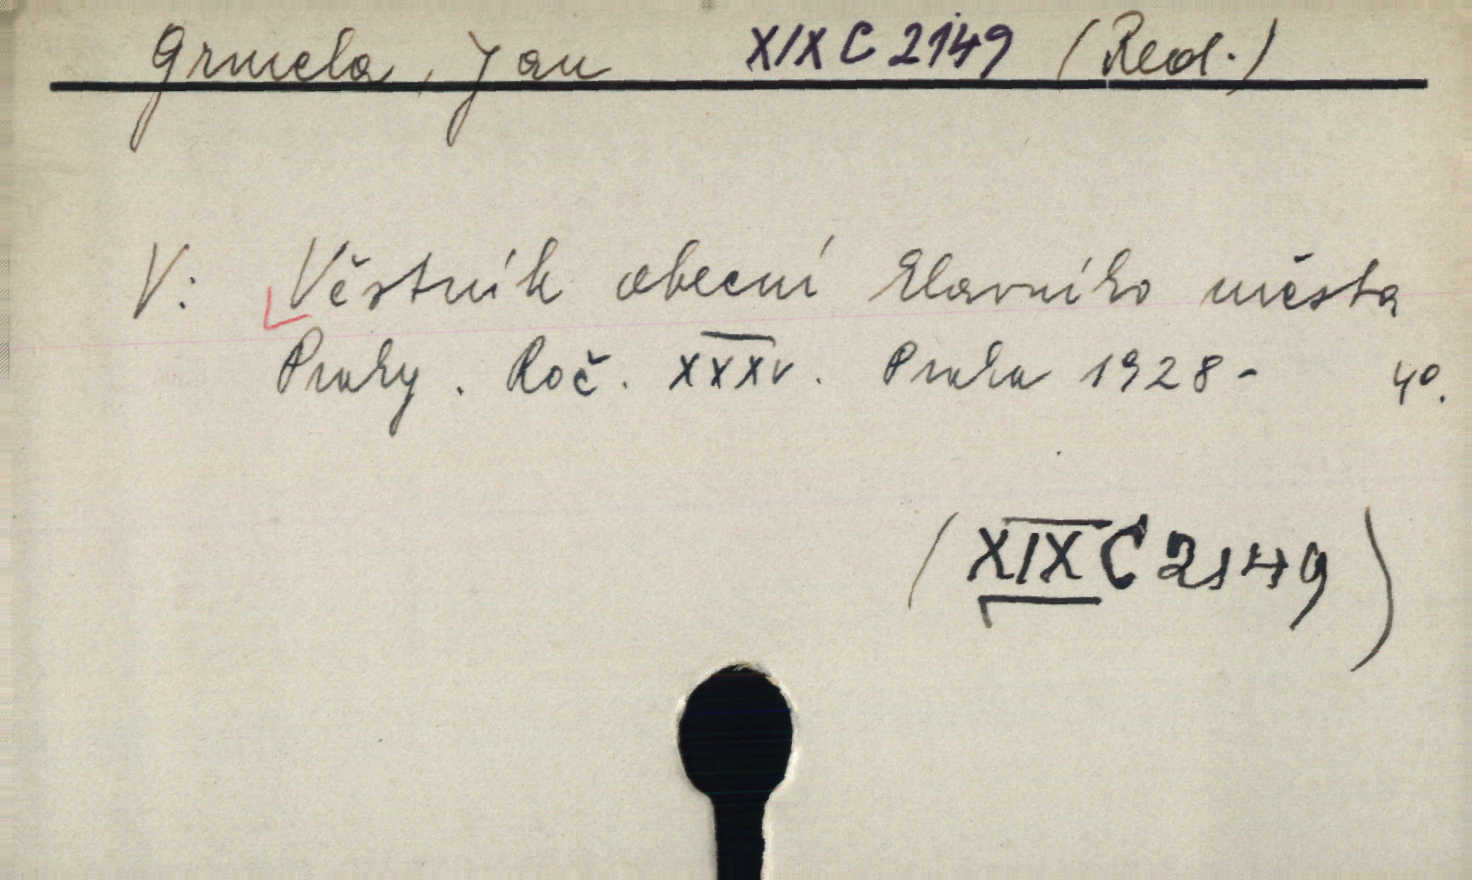 Grmela, Jan XIX C 2149 (Red.)
V: Věstník obecní hlavního města
Prahy. Roč. XXXV. Praha 1928- 4°.
(XIX C 2149)